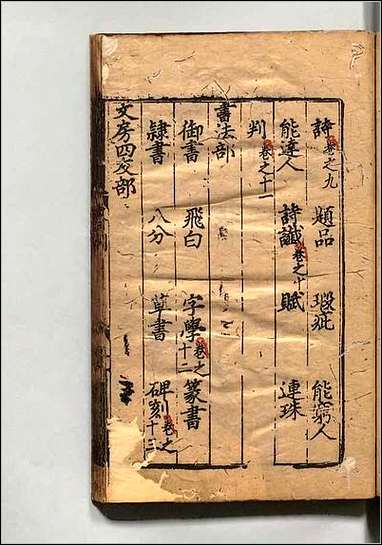 詩卷之九 題品 瑕疵 能窮人
能達人 詩讖卷之十 賦 連珠
判卷之十一
書法部
御書 飛白 字學卷之十二 篆書
隸書 八分 草書 碑刻卷之十三
文房四友部